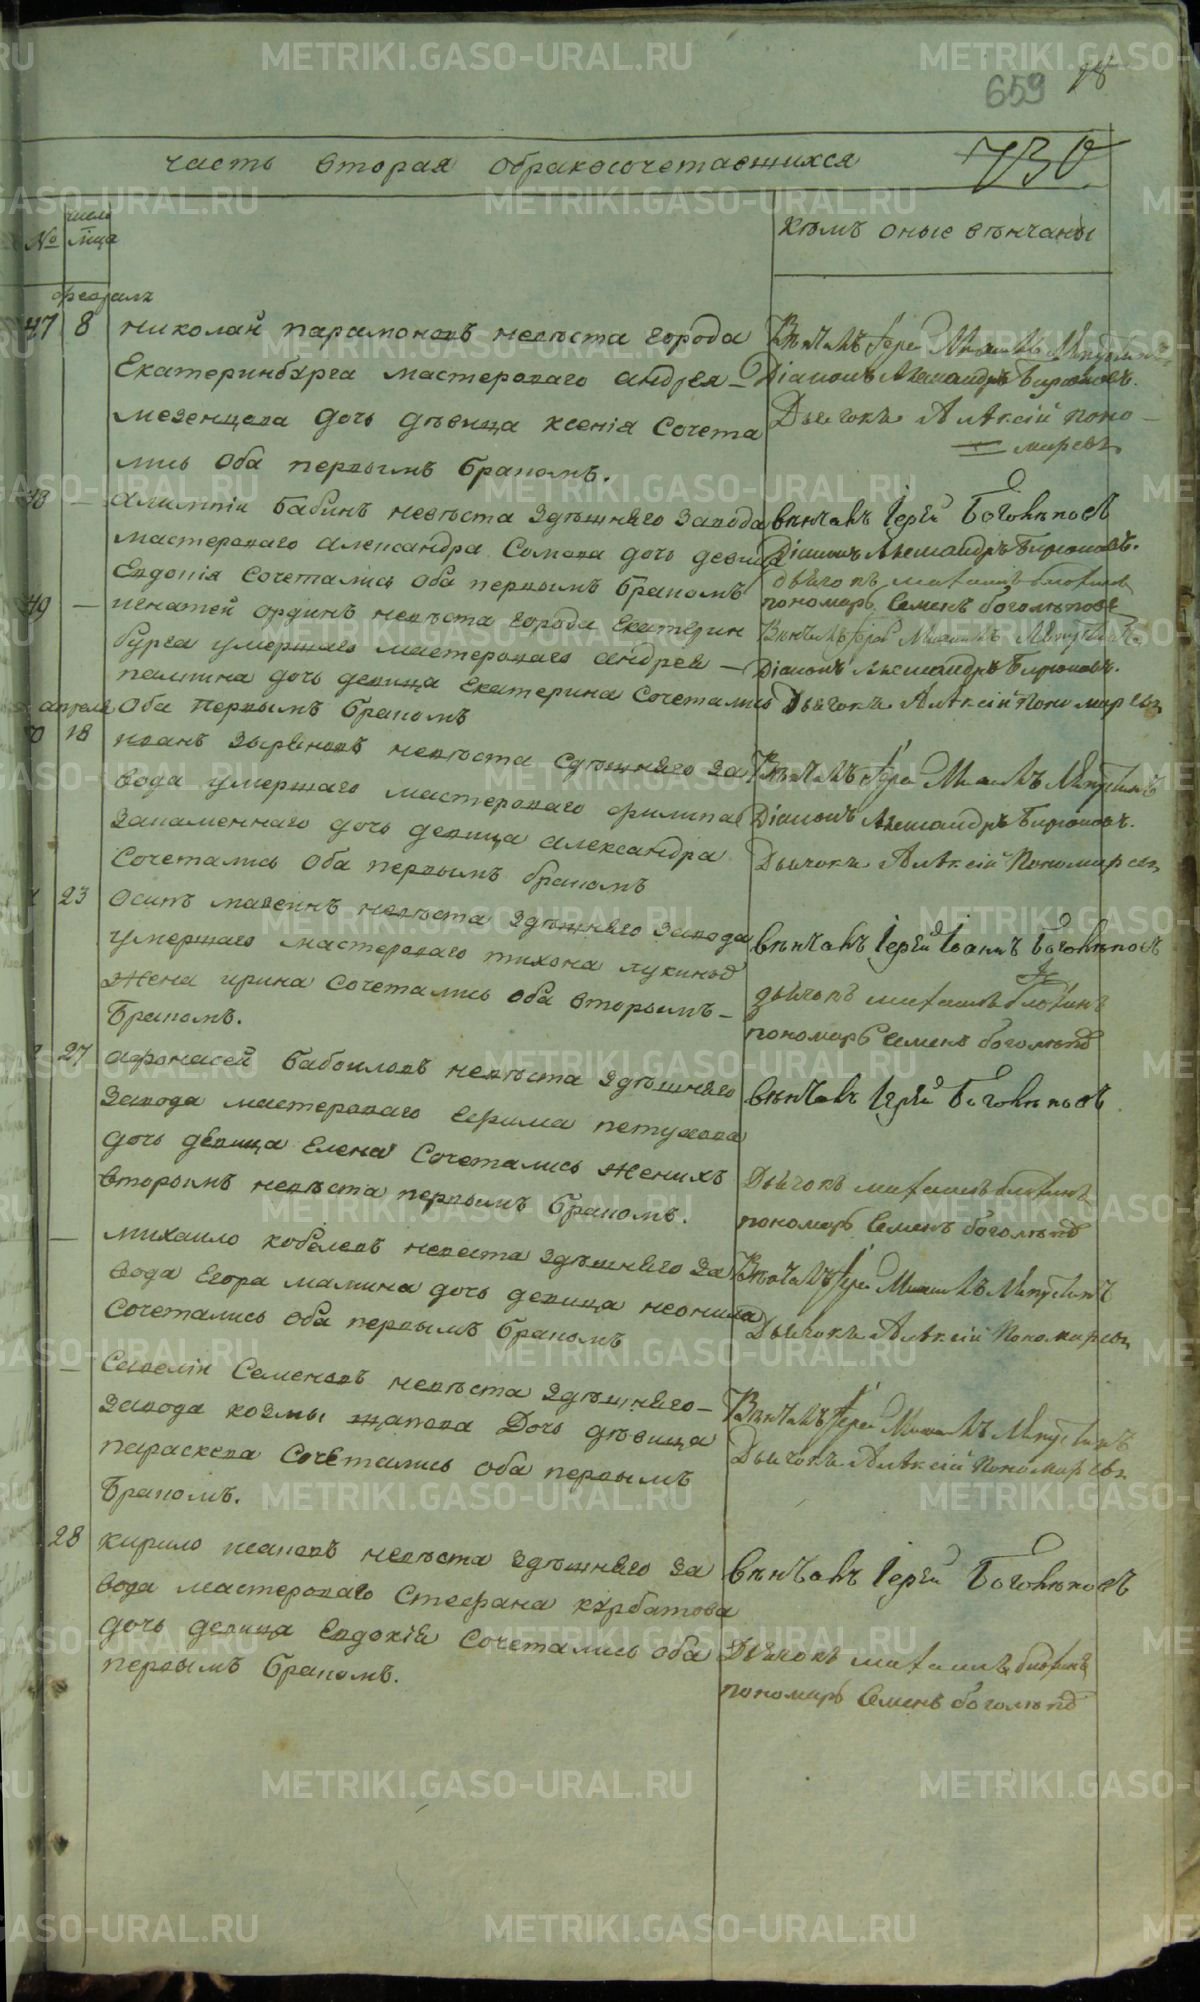 METRIKI.GASO-URAL.RU
659 18
730
часть вторая обракосочетавшихся
№ число мца
кѣмъ оные вѣнчаны
февраль
47 8 николай парамоновъ невѣста города
Екатеринбурга мастероваго андрея
мезенцова дочь дѣвица ксенія Сочета
лись Оба первымъ бракомъ.
Вѣнчалъ Іерей Михаилъ
Діаконъ Александръ Бирюковъ.
Дьячокъ Алѣксій поно
маревъ
48 — алимпіи бабинъ невѣста здѣшнѣго завода
мастероваго александра Сомова дочь девица
Евдокія Сочетались Оба первымъ бракомъ
вѣнчалъ Іерей Боголѣповъ
Діаконъ Александръ Бирюковъ.
дьячокъ
пономарь Семенъ боголѣповъ
49 — игнатей ординъ невѣста города Екатерин
бурга умершаго мастероваго андрея —
палкина дочь девица Екатерина Сочетались
Оба Первымъ бракомъ
Вѣнчалъ Іерей Михаилъ
Діаконъ Александръ Бирюковъ.
Дьячокъ Алѣксій Пономаревъ
апреля
18 иванъ зыряновъ невѣста Сдѣшнѣго за
вода умершаго мастероваго филипа
закаменнаго дочь девица александра
Сочетались Оба первымъ бракомъ
Вѣнчалъ Іерей Михаилъ
Діаконъ Александръ Бирюковъ.
Дьячокъ Алѣксій Пономаревъ
23 осипъ макеинъ невѣста здѣшнѣго завода
умершаго мастероваго тихона лукиныхъ
жена ирина Сочетались оба вторымъ —
бракомъ.
вѣнчалъ Іерей Іоаннъ Боголѣповъ
дьячокъ
пономарь Семенъ боголѣповъ
27 афонасей бабоиловъ невѣста здѣшнѣго
завода мастероваго ефима петухова
дочь девица Елена Сочетались женихъ
вторымъ невѣста первымъ бракомъ.
вѣнчалъ Іерей Боголѣповъ
Дьячокъ
пономарь Семенъ боголѣповъ
— михаило кобелевъ невеста здѣшнѣго за
вода Егора мамина дочь девица неонила
Сочетались оба первымъ бракомъ
Вѣнчалъ Іерей Михаилъ
Дьячокъ Алѣксій Пономаревъ
— Савеліи Семеновъ невѣста здѣшнѣго —
завода козмы щапова Дочь дѣвица
параскева Сочетались оба первымъ
бракомъ.
Вѣнчалъ Іерей Михаилъ
Дьячокъ Алѣксій Пономаревъ
28 кирило исаковъ невѣста здѣшнѣго за
вода мастероваго Стефана курбатова
дочь девица Евдокія Сочетались оба
первымъ бракомъ.
вѣнчалъ Іерей Боголѣповъ
Дьячокъ
пономарь Семенъ боголѣповъ